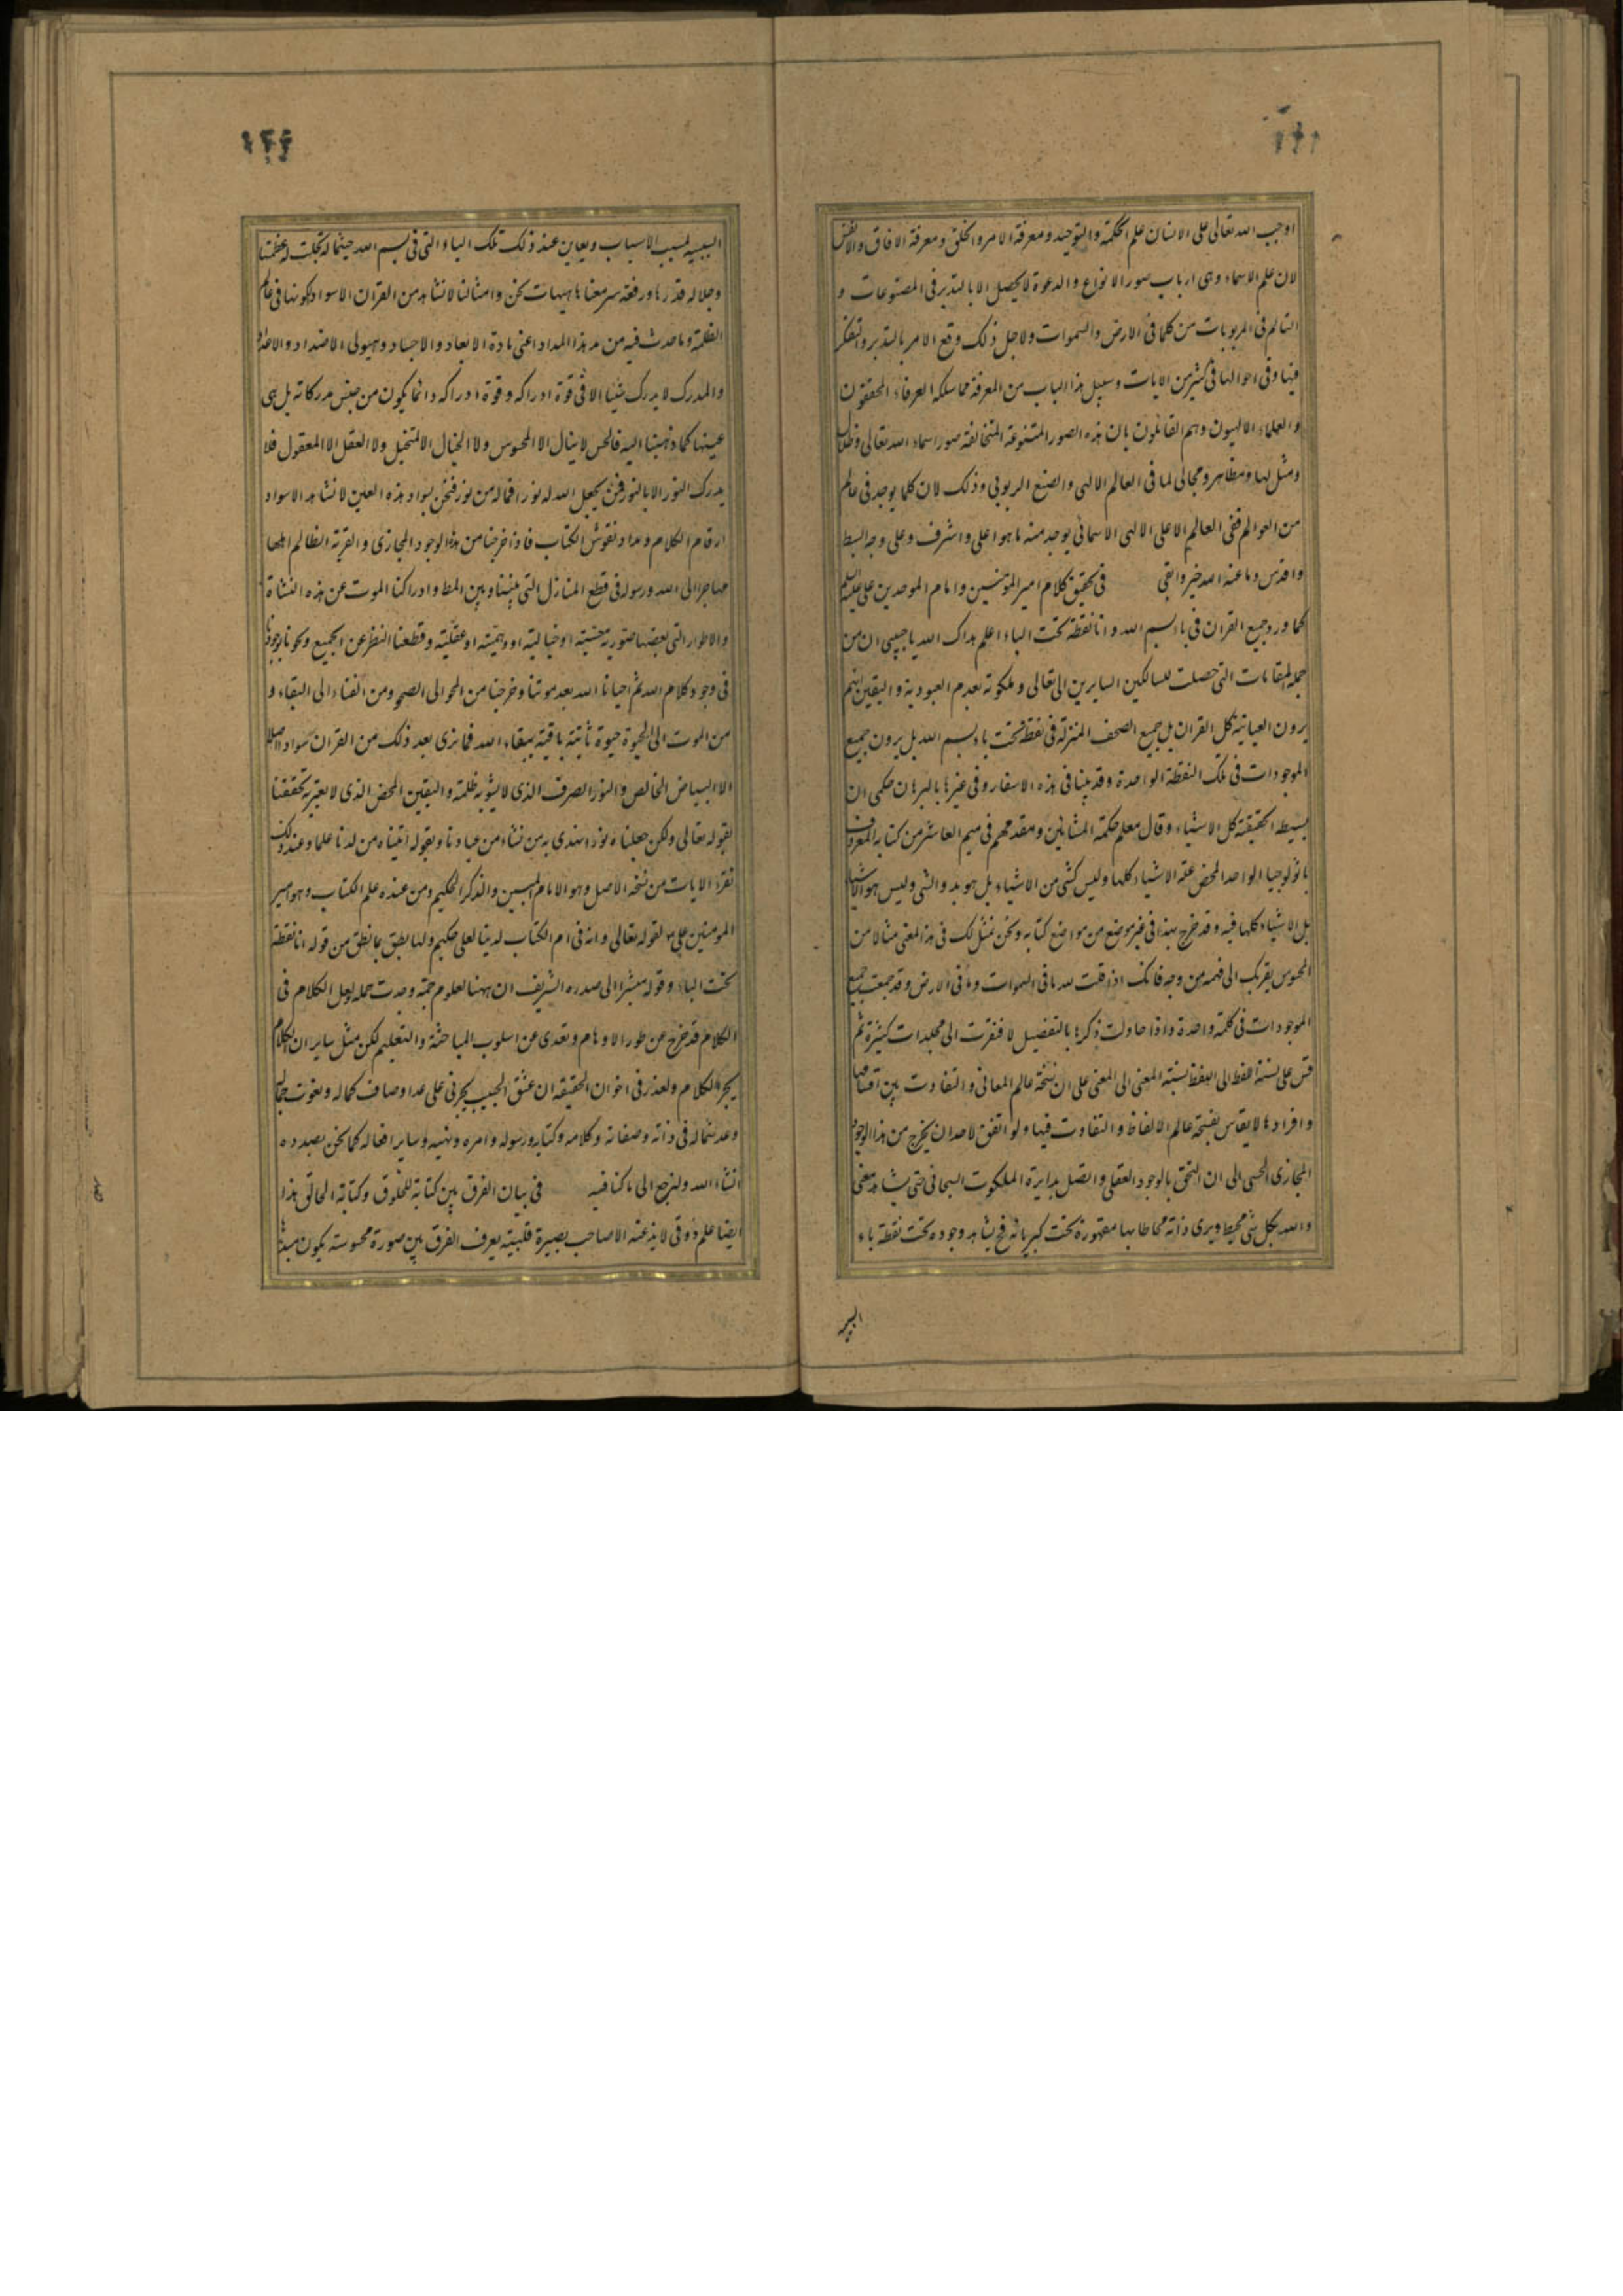 اوجب الله تعالى على الانسان علم الحكمة والتوحيد ومعرفة الامر والخلق ومعرفة الافاق والانفس
لان علم الاسماء وهى ارباب صور الانواع والدعوة لا يحصل الا بالتدبر فى المصنوعات و
التالم فى المربوبات من كلما فى الارض والسموات ولاجل ذلك وقع الامر بالتدبر والتفكر
فيها وفى احوالها فى كثير من الايات وسبيل هذا الباب من المعرفة مما سلكه العرفاء المحققون
والعلماء الالهيون وهم القائلون بان هذه الصور المتنوعة المتخالفة صور اسماء الله تعالى وظلال
ومثل لها ومظاهر ومجالى لما فى العالم الالهى والصنع الربوبى وذلك لان كلما يوجد فى عالم
من العوالم ففى العالم الاعلى الالهى الاسمائى يوجد منه ما هو اعلى واشرف وعلى وجه البسط
واقدس وما عند الله خير وابقى فى تحقيق كلام امير المؤمنين وامام الموحدين على عليه السلم
كما ورد جميع القران فى باء بسم الله وانا نقطة تحت الباء اعلم هداك الله يا حبيبى ان من
جملة المقامات التى حصلت للسالكين السايرين الى تعالى وملكوته بقدم العبودية واليقين انهم
يرون العيانية كل القران بل جميع الصحف المنزلة فى نقطة تحت باء بسم الله بل يرون جميع
الموجودات فى تلك النقطة الواحدة وقد بينا فى هذه الاسفار وفى غيرها بالبرهان حكمى ان
بسيطه الحقيقة كل الاشياء وقال معلم حكمة المشائين ومقدمهم فى ميم العاشر من كتابه المعروف
باثولوجيا الواحد المحض علة الاشياء كلها وليس كشى من الاشياء بل هو بدو الشى وليس هو الاشياء
بل الاشياء كلها فيه وقد خرج بهذا فى غير موضع من مواضع كتابه ونحن نمثل لك فى هذا المعنى مثالا من
المحسوس يقربك الى فهمه من وجه فانك اذا قلت لله ما فى السموات وما فى الارض وقد جمعت جميع
الموجودات فى كلمة واحدة واذا حاولت ذكرها بالتفصيل لافتقرت الى مجلدات كثيرة ثم
قس على نسبة اللفظ الى اللفظ نسبة المعنى الى المعنى على ان فسحة عالم المعانى والتفاوت بين اقسامها
وافرادها لا يقاس بفسحة عالم الالفاظ والتفاوت فيها ولو اتفق لاحد ان يخرج من هذا الوجود
المجازى الحسى الى ان التحق بالوجود العقلى واتصل بدايرة الملكوت السبحانى حتى يشاهد معنى
والله بكل شى محيط ويرى ذاته محاطا بها مقهورة تحت كبريائه فح يشاهد وجوده تحت نقطة باء
السببيه لمسبب الاسباب ويعاين عند ذلك تلك الباء التى فى بسم الله حيثما له تجلت له عظمتها
وجلاله قدرها ورفعة سر معناها هيهات نحن وامثالنا لا نشاهد من القران الا سواد لكوننا فى عالم
الظلمة وما حدث فيه من مد هذا المداد اعنى مادة الابعاد والاجساد وهيولى الاضداد والاعداد
والمدرك لا يدرك شيئا الا فى قوة ادراكه وقوة ادراكه دائما يكون من جنس مدركاته بل هى
عينها كما ذهبنا اليه فالحس لا ينال الا المحسوس ولا الخيال الا المتخيل ولا العقل الا المعقول فلا
يدرك النور الا بالنور فمن يجعل الله له نورا فما له من نور فنحن بسواد هذه العين لا نشاهد الا سواد
ارقام الكلام ومداد نقوش الكتاب فاذا خرجنا من هذا الوجود المجازى والقرية الظالم اهلها
مهاجرا الى الله ورسوله فى قطع المنازل التى بيننا وبين المط وادراكنا الموت عن هذه النشاة
والاطوار التى بعضها صورية حسيته او خيالية او وهميته او عقليته وقطعنا النظر عن الجميع ومحونا بوجودنا
فى وجود كلام الله ثم احيانا الله بعد موتنا وخرجنا من المحو الى الصحو ومن الفناء الى البقاء و
من الموت الى الحيوة حيوة ثابتة باقية ببقاء الله فما نرى بعد ذلك من القران سوادا اصلا
الا البياض الخالص والنور الصرف الذى لا يشوبه ظلمة واليقين المحض الذى لا يعتريه تحققنا
بقوله تعالى ولكن جعلناه نورا نهدى به من نشاء من عبادنا وبقوله اتيناه من لدنا علما وعند ذلك
نقرء الايات من نسخه الاصل وهو الامام المبين والذكر الحكيم ومن عنده علم الكتاب وهو امير
المومنين على لقوله تعالى وانه فى ام الكتاب لدينا لعلى حكيم ولهذا نطق بما نطق من قوله انا نقطة
تحت الباء وقوله مشيرا الى صدره الشريف ان ههنا لعلوم جمة وجدت حمله ولعل الكلام فى
الكلام قد خرج عن طور الاوهام وتعدى عن اسلوب المباحثة والتعليم لكن مثل ساير ان الكلام
يجر الكلام ولعذر فى اخوان الحقيقه ان عشق الحبيب يجرنى على عد اوصاف كماله ونعوت جماله
وعد شماله فى ذاته وصفاته وكلامه وكتابه ورسوله وامره ونهيه وساير افعاله كما نحن بصدده
انشاء الله ولنرجع الى ما كنا فيه فى بيان الفرق بين كتابة المخلوق وكتابة الخالق هذا
ايضا علم ذوقى لا يذعنه الا صاحب بصيرة قلبيته يعرف الفرق بين صورة محسوسته يكون مبدأ